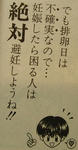 でも排卵日は
不確実なので…
妊娠したら困る人は
絶対避妊しようね!!